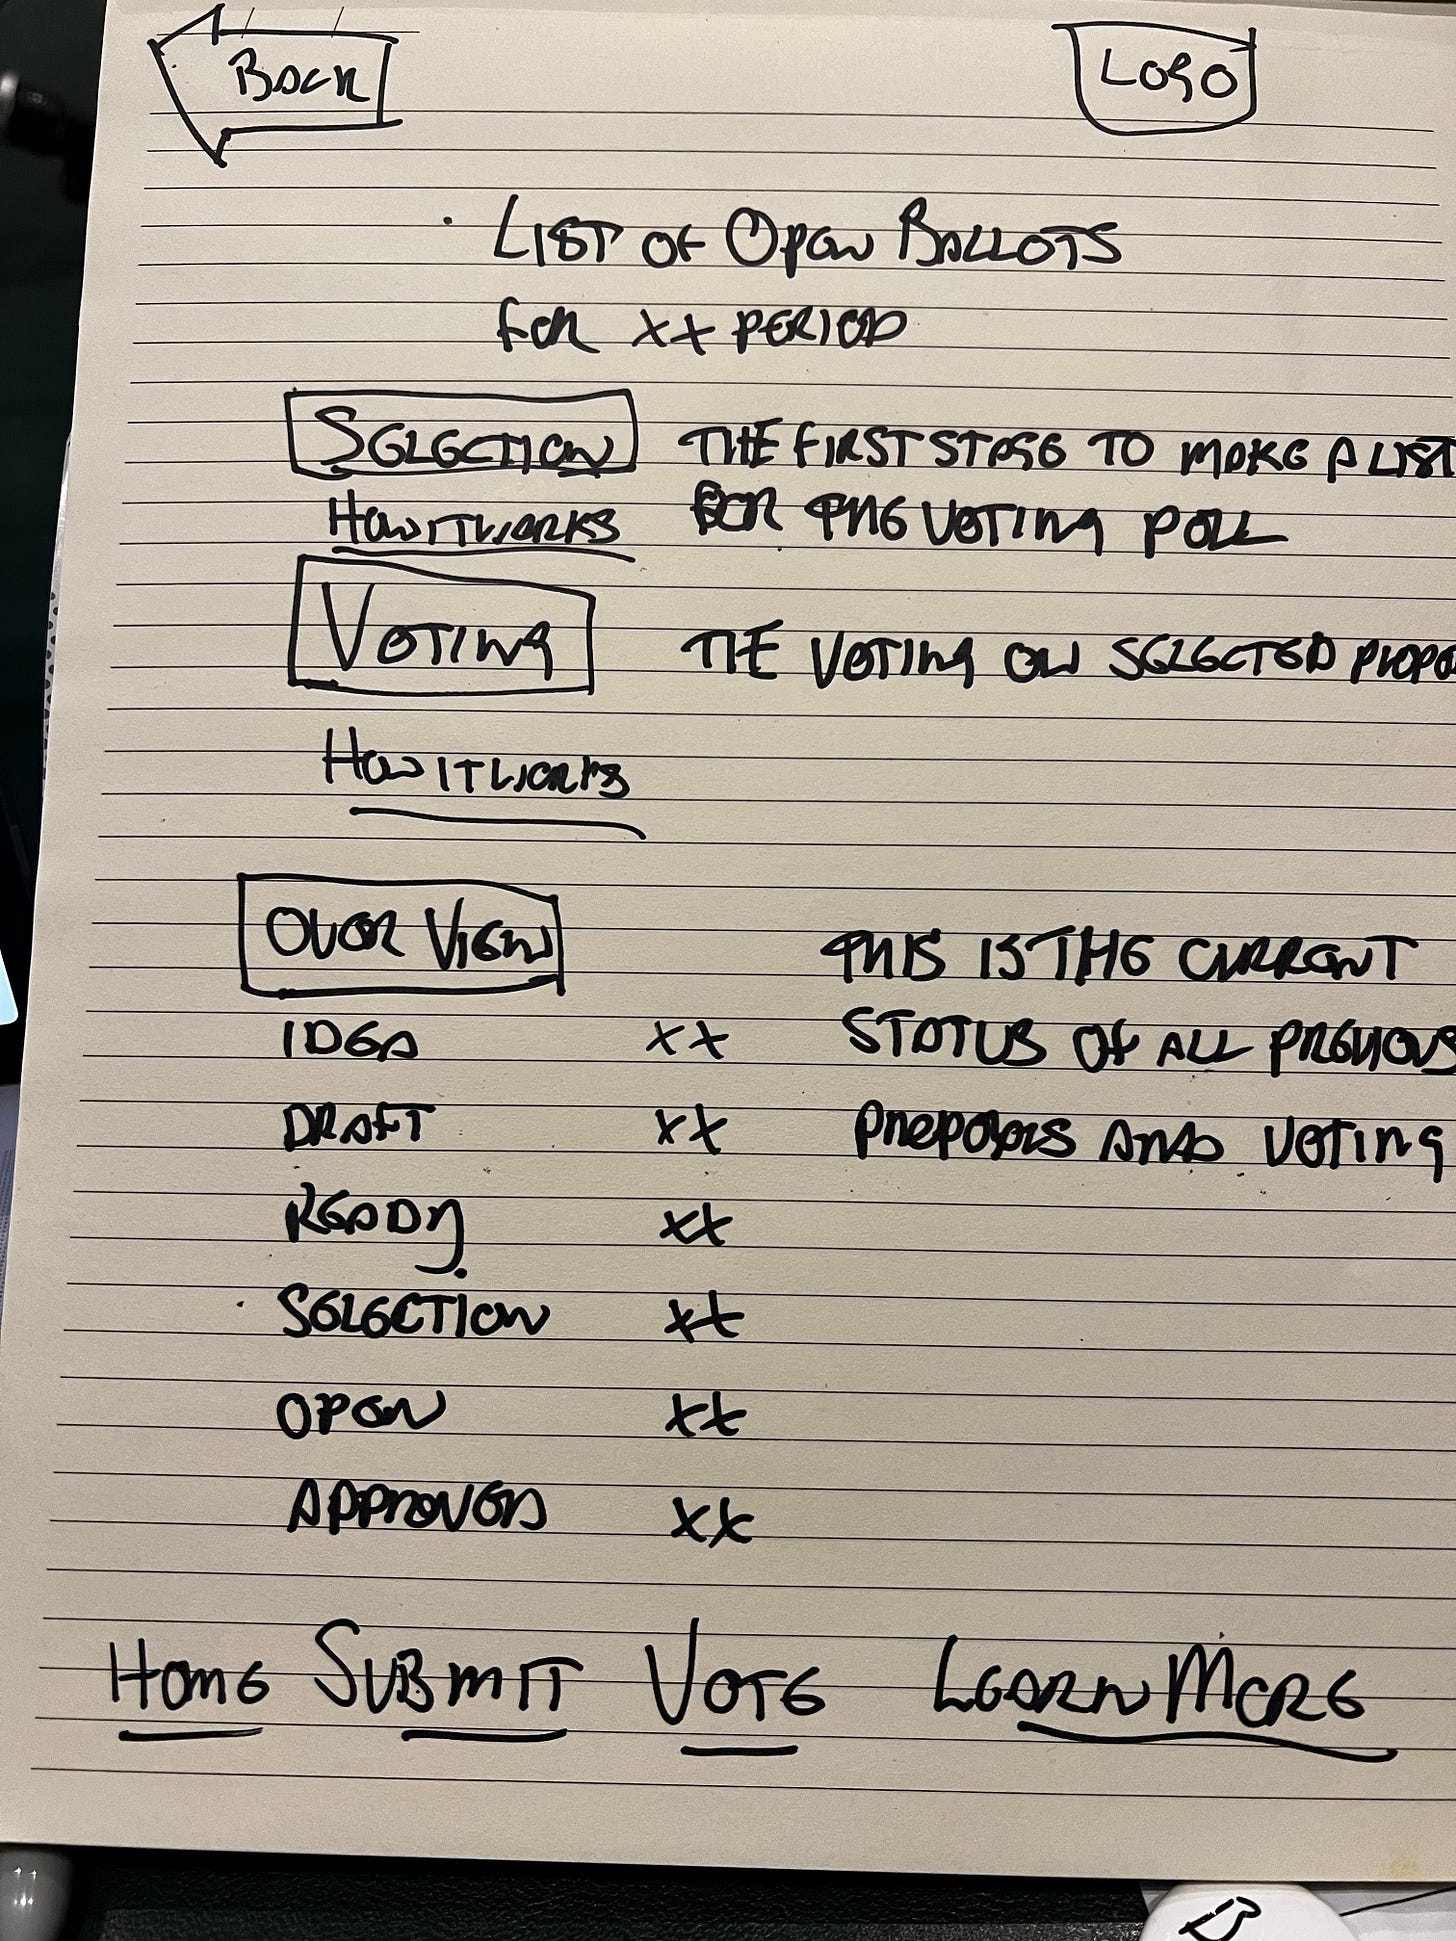 BACK
LOGO
LIST OF OPEN BALLOTS
FOR XX PERIOD
SELECTION THE FIRST STAGE TO MAKE A LIST
HOW IT WORKS FOR THE VOTING POLL
VOTING THE VOTING ON SELECTED PROPO
HOW IT WORKS
OVERVIEW THIS IS THE CURRENT
IDEA XX STATUS OF ALL PREVIOUS
DRAFT XX AND VOTING
READY XX
SELECTION XX
OPEN XX
APPROVED XX
HOME SUBMIT VOTE LEARN MORE
B